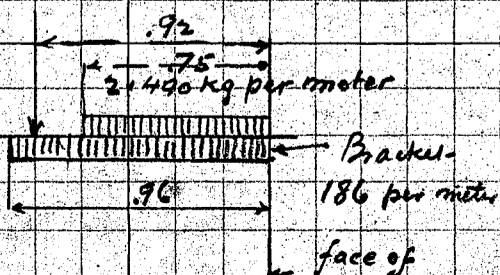 .92
.75
2.400 kg per meter
Bracket
.96
186 per meter
face of